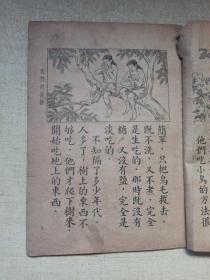 簡單，只把鳥毛拔去，
既不洗，又不煮，完全
是生吃的。那時既沒有
糖，又沒有鹽，完全是
淡吃的。
不知隔了多少年代，
人多了，樹上的東西不
够吃，他們才爬下樹來，
開始吃地上的東西，
他們吃小鳥的方法很